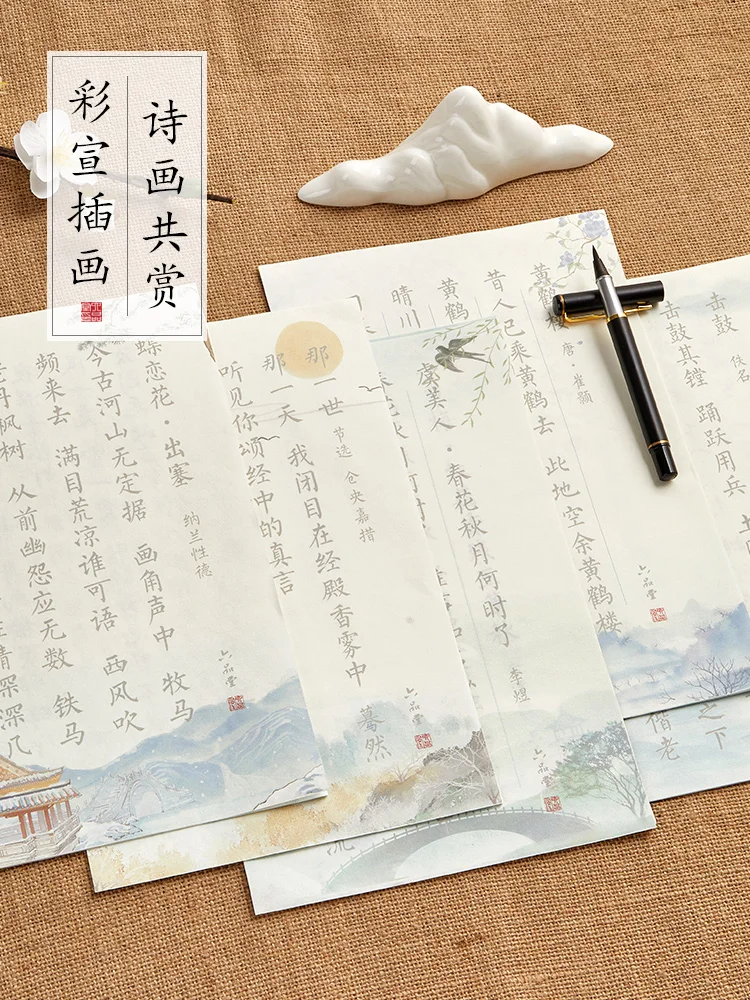 诗画共赏
彩宣插画
蝶恋花·出塞
纳兰性德
今古河山无定据 画角声中 牧马
频来去 满目荒凉谁可语 西风吹
枫树 从前幽怨应无数 铁马
青冢深深几
那一世
节选 仓央嘉措
那一天 我闭目在经殿香雾中 蓦然
听见你颂经中的真言
虞美人·春花秋月何时了
李煜
黄鹤楼
唐·崔颢
昔人已乘黄鹤去 此地空余黄鹤楼
黄鹤
晴川
佚名
击鼓
击鼓其镗 踊跃用兵 土
之下
偕老
六品堂
六品堂
六品堂
六品堂